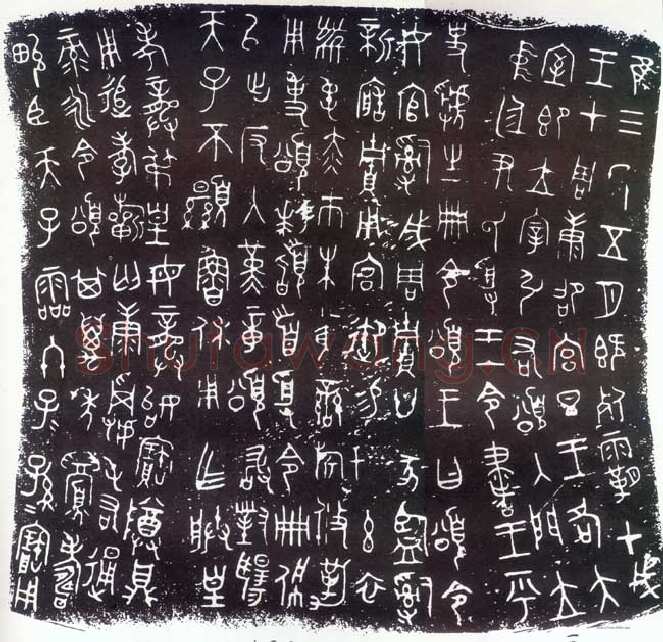 隹三年五月既死霸甲戌
王才周康卲宮旦王各大
室即立宰引右頌入門立
中廷尹氏受王令書王乎
史虢生冊令頌王曰頌令
女官𤔲成周貯廿家監𤔲
新造貯用宮御易女玄衣
黹屯赤巿朱黃鑾旂攸勒
用事頌拜稽首受令冊佩
以出反入堇章頌敢對揚
天子不顯魯休用作朕皇
考龏弔皇母龏始寶尊鼎
用追孝祈匄康屯右通
彔永令頌其萬年眉壽
畯臣天子霝冬子=孫=寶用
Shufawang.CN